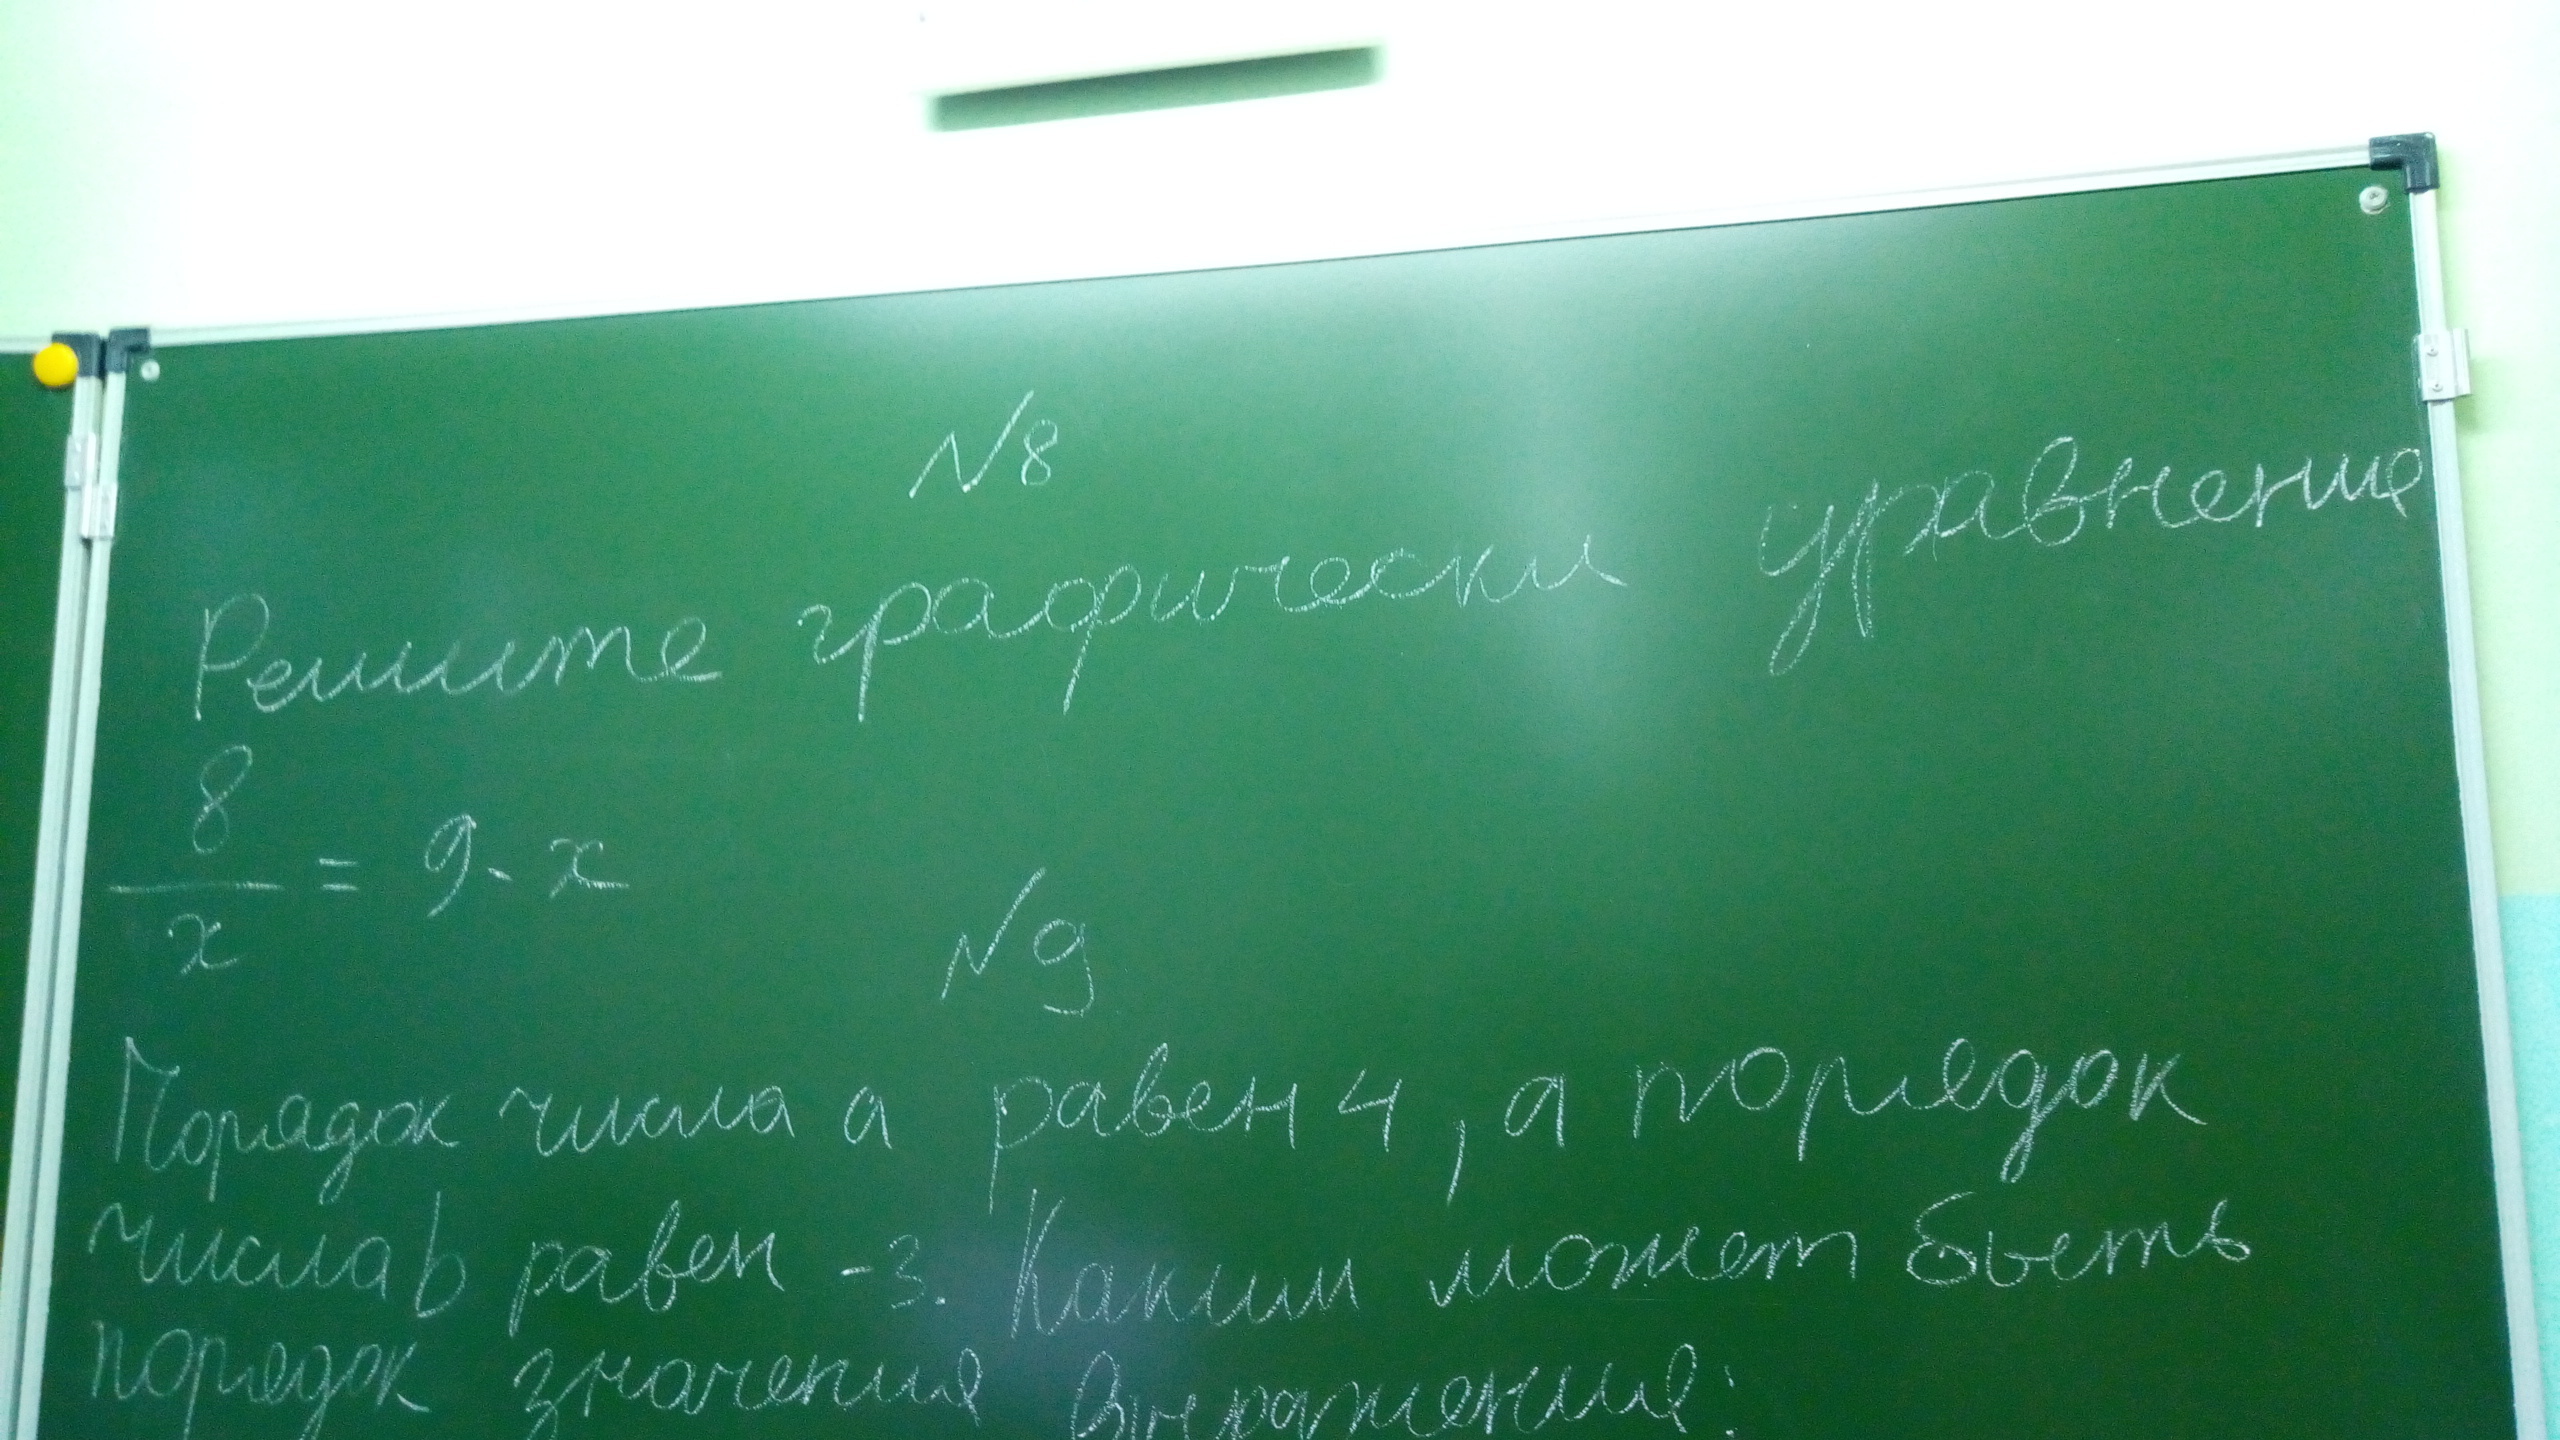 N8
Решите графически уравнение
8/x = 9 - x
N9
Порядок числа a равен 4, а порядок
числа b равен -3. Каким может быть
порядок значения выражения: